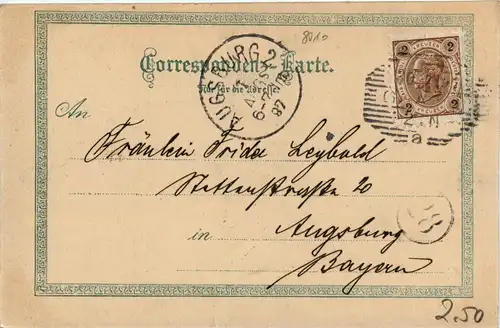 8010
Correspondenz-Karte.
Nur für die Adresse
AUGSBURG 2
6-7
97
2 2
2 2
a
An
Fräulein Frida Leybold
Stettenstraße 20
in Augsburg
Bayern
2.50